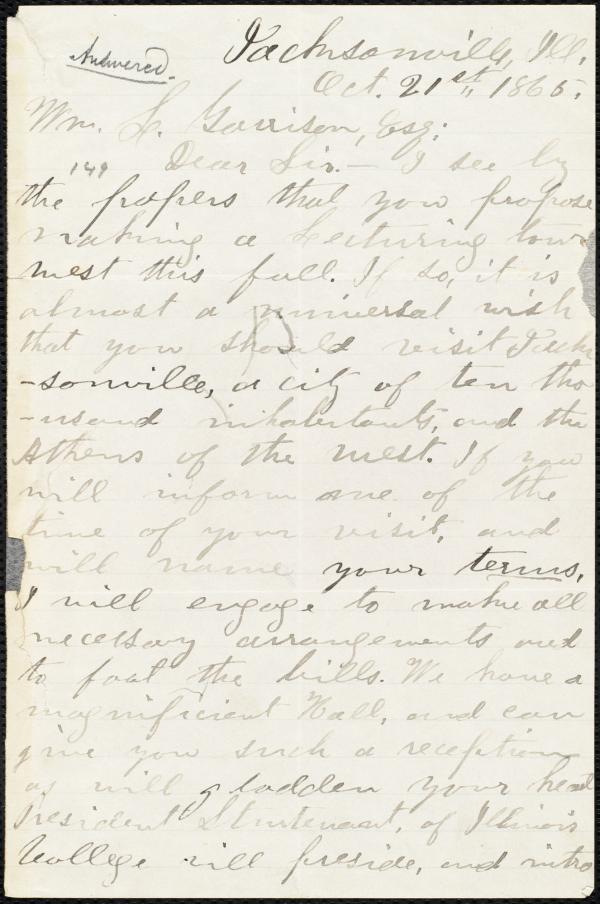 Answered.
Jacksonville, Ill,
Oct. 21st, 1865.
Wm. L. Garrison, Esq:
149 Dear Sir.— I see by
the papers that you propose
making a Lecturing tour
west this fall. If so, it is
almost a universal wish
that you should visit Jack
-sonville, a city of ten tho
-usand inhabitants, and the
Athens of the west. If you
will inform me of the
time of your visit, and
will name your terms,
I will engage to make all
necessary arrangements and
to foot the bills. We have a
magnificient Hall, and can
give you such a reception
as will gladden your heart
President Sturtevant, of Illinois
College will preside, and intro